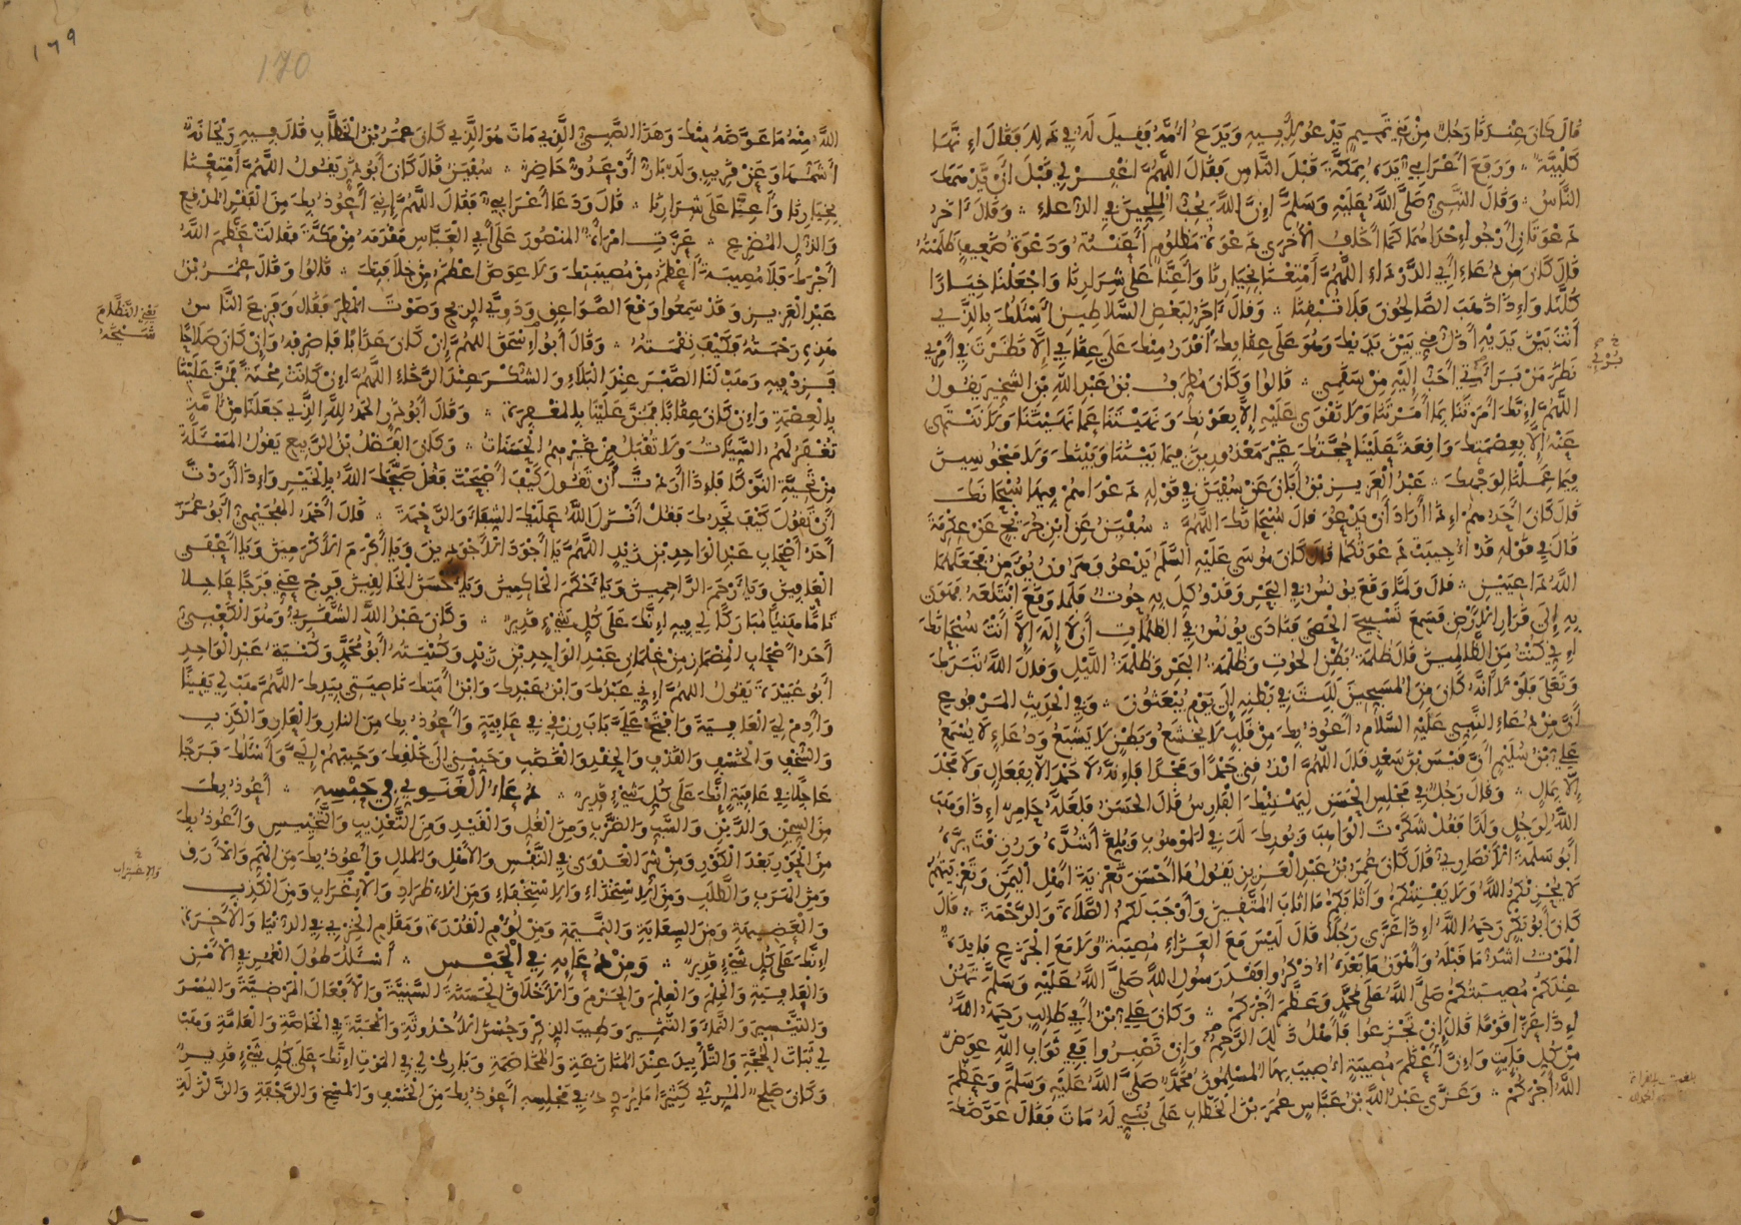 قَالَ كَانَ عِنْدَنَا رَجُلٌ مِنْ بَنِي تَمِيمٍ يَدْعُو لِأَبِيهِ وَيَدَعُ أُمَّهُ فَقِيلَ لَهُ فِي ذَلِكَ فَقَالَ إِنَّهَا
كَلْبِيَّةٌ ۞ وَرَفَعَ أَعْرَابِيٌّ يَدَهُ بِمَكَّةَ قَبْلَ النَّاسِ فَقَالَ اللَّهُمَّ اغْفِرْ لِي قَبْلَ أَنْ يَدْهَمَكَ
النَّاسُ ۞ وَقَالَ النَّبِيُّ صَلَّى اللَّهُ عَلَيْهِ وَسَلَّمَ إِنَّ اللَّهَ يُحِبُّ الْمُلِحِّينَ فِي الدُّعَاءِ ۞ وَقَالَ آخَرُ
دَعْوَتَانِ أَرْجُو إِحْدَاهُمَا كَمَا أَخَافُ الْأُخْرَى دَعْوَةُ مَظْلُومٍ أَعَنْتُهُ وَدَعْوَةُ ضَعِيفٍ ظَلَمْتُهُ
قَالَ كَانَ مِنْ دُعَاءِ أَبِي الدَّرْدَاءِ اللَّهُمَّ أَمْتِعْنَا بِخِيَارِنَا وَأَعِنَّا عَلَى شِرَارِنَا وَاجْعَلْنَا خِيَارًا
كُلَّنَا وَإِذَا ذَهَبَ الصَّالِحُونَ فَلَا تُبْقِنَا ۞ وَقَالَ آخَرُ لِبَعْضِ السَّلَاطِينِ أَسْئَلُكَ بِالَّذِي
أَنْتَ بَيْنَ يَدَيْهِ أَذَلُّ مِنِّي بَيْنَ يَدَيْكَ وَهُوَ عَلَى عِقَابِكَ أَقْدَرُ مِنْكَ عَلَى عِقَابِي إِلَّا نَظَرْتَ فِي أَمْرِي
نَظَرَ مَنْ بَرَاءَتِي أَحَبُّ إِلَيْهِ مِنْ سَقَمِي ۞ قَالُوا وَكَانَ مُطَرِّفُ بْنُ عَبْدِ اللَّهِ بْنِ الشِّخِّيرِ يَقُولُ
اللَّهُمَّ إِنَّكَ أَمَرْتَنَا بِمَا أَمَرْتَنَا وَلَا نَقْوَى عَلَيْهِ إِلَّا بِعَوْنِكَ وَنَهَيْتَنَا عَمَّا نَهَيْتَنَا وَلَا نَنْتَهِي
عَنْهُ إِلَّا بِعِصْمَتِكَ وَاقِعَةٌ عَلَيْنَا حُجَّتُكَ غَيْرَ مَعْذُورِينَ فِيمَا بَيْنَنَا وَبَيْنَكَ وَلَا مَبْخُوسِينَ
فِيمَا عَمِلْنَا لِوَجْهِكَ ۞ عَبْدُ الْعَزِيزِ بْنُ أَبَانَ عَنْ سُفْيَنَ فِي قَوْلِهِ دَعْوَاهُمْ فِيهَا سُبْحَانَكَ
قَالَ كَانَ أَحَدُهُمْ إِذَا أَرَادَ أَنْ يَدْعُوَ قَالَ سُبْحَانَكَ اللَّهُمَّ ۞ سُفْيَنُ عَنِ ابْنِ جُرَيْجٍ عَنْ عِكْرِمَةَ
قَالَ فِي قَوْلِهِ قَدْ أُجِيبَتْ دَعْوَتُكُمَا قَالَ كَانَ مُوسَى عَلَيْهِ السَّلَمُ يَدْعُو وَهَرُونُ يُؤَمِّنُ فَجَعَلَهُمَا
اللَّهُ دَاعِيَيْنِ ۞ قَالَ وَلَمَّا وَقَعَ يُونُسُ فِي الْبَحْرِ وَقَدْ وُكِّلَ بِهِ حُوتٌ فَلَمَّا وَقَعَ ابْتَلَعَهُ فَهَوَى
بِهِ إِلَى قَرَارِ الْأَرْضِ فَسَمِعَ تَسْبِيحَ الْحَصَى فَنَادَى يُونُسُ فِي الظُّلُمَاتِ أَنْ لَا إِلَهَ إِلَّا أَنْتَ سُبْحَانَكَ
إِنِّي كُنْتُ مِنَ الظَّالِمِينَ قَالَ ظُلْمَةُ بَطْنِ الْحُوتِ وَظُلْمَةُ الْبَحْرِ وَظُلْمَةُ اللَّيْلِ وَقَالَ اللَّهُ تَبَرَكَ
وَتَعَلَى فَلَوْلَا أَنَّهُ كَانَ مِنَ الْمُسَبِّحِينَ لَلَبِثَ فِي بَطْنِهِ إِلَى يَوْمِ يُبْعَثُونَ ۞ وَفِي الْحَدِيثِ الْمَرْفُوعِ
أَنَّ مِنْ دُعَاءِ النَّبِيِّ عَلَيْهِ السَّلَامُ أَعُوذُ بِكَ مِنْ قَلْبٍ لَا يَخْشَعُ وَبَطْنٍ لَا يَشْبَعُ وَدُعَاءٍ لَا يُسْمَعُ
عَلِيُّ بْنُ سُلَيْمٍ أَنَّ قَيْسَ بْنَ سَعْدٍ قَالَ اللَّهُمَّ ارْزُقْنِي حَمْدًا وَمَجْدًا فَإِنَّهُ لَا حَمْدَ إِلَّا بِفَعَالٍ وَلَا مَجْدَ
إِلَّا بِمَالٍ ۞ وَقَالَ رَجُلٌ فِي مَجْلِسِ الْحَسَنِ لِيَهْنِيكَ الْفَارِسُ فَقَالَ الْحَسَنُ فَلَعَلَّهُ حَامِرٌ إِذَا وَهَبَ
اللَّهُ لِرَجُلٍ وَلَدًا فَقُلْ شَكَرْتَ الْوَاهِبَ وَبُورِكَ لَكَ فِي الْمَوْهُوبِ وَبَلَغَ أَشُدَّهُ وَرُزِقْتَ بِرَّهُ
أَبُو سَلَمَةَ الْأَنْصَارِيُّ قَالَ كَانَ عُمَرُ بْنُ عَبْدِ الْعَزِيزِ يَقُولُ مَا أَحْسَنَ تَعْزِيَةَ أَهْلِ الْيَمَنِ وَتَعْزِيَتُهُمْ
لَا يُحْزِنُكُمُ اللَّهُ وَلَا يَفْتِنْكُمْ وَأَثَابَكُمْ مَا أَثَابَ الْمُتَّقِينَ وَأَوْجَبَ لَكُمُ الصَّلَاةَ وَالرَّحْمَةَ ۞ قَالَ
كَانَ أَبُو بَكْرٍ رَحِمَهُ اللَّهُ إِذَا عَزَّى رَجُلًا قَالَ لَيْسَ مَعَ الْعَزَاءِ مُصِيبَةٌ وَلَا مَعَ الْجَزَعِ فَايِدَةٌ
الْمَوْتُ أَشَدُّ مَا قَبْلَهُ وَأَهْوَنُ مَا بَعْدَهُ اذْكُرُوا فَقْدَ رَسُولِ اللَّهِ صَلَّى اللَّهُ عَلَيْهِ وَسَلَّمَ تَهُنْ
عِنْدَكُمْ مُصِيبَتُكُمْ صَلَّى اللَّهُ عَلَى مُحَمَّدٍ وَعَظَّمَ أَجْرَكُمْ ۞ وَكَانَ عَلِيُّ بْنُ أَبِي طَالِبٍ رَحِمَهُ اللَّهُ
إِذَا عَزَّى قَوْمًا قَالَ إِنْ تَجْزَعُوا فَأَهْلُ ذَلِكَ الرَّحِمُ وَإِنْ تَصْبِرُوا فَفِي ثَوَابِ اللَّهِ عِوَضٌ
مِنْ كُلِّ فَايِتٍ وَإِنَّ أَعْظَمَ مُصِيبَةٍ أُصِيبَ بِهَا الْمُسْلِمُونَ مُحَمَّدٌ صَلَّى اللَّهُ عَلَيْهِ وَسَلَّمَ وَعَظَّمَ
اللَّهُ أَجْرَكُمْ ۞ وَعَزَّى عَبْدُ اللَّهِ بْنُ عَبَّاسٍ عُمَرَ بْنَ الْخَطَّابِ عَلَى بُنَيٍّ لَهُ مَاتَ فَقَالَ عَوَّضَكَ
١٦٩
170
اللَّهُ مِنْهُ مَا عَوَّضَهُ مِنْكَ وَهَذَا الصَّبِيُّ الَّذِي مَاتَ هُوَ الَّذِي كَانَ عُمَرُ بْنُ الْخَطَّابِ قَالَ فِيهِ رَيْحَانَةٌ
أَشَمُّهَا وَعَنْ قَرِيبٍ وَلَدٌ بَارٌّ أَوْ عَدُوٌّ حَاضِرٌ ۞ سُفْيَنُ قَالَ كَانَ أَبُو ذَرٍّ يَقُولُ اللَّهُمَّ أَمْتِعْنَا
بِخِيَارِنَا وَأَعِنَّا عَلَى شِرَارِنَا ۞ قَالَ وَدَعَا أَعْرَابِيٌّ فَقَالَ اللَّهُمَّ إِنِّي أَعُوذُ بِكَ مِنَ الْفَقْرِ الْمُدْقِعِ
وَالذُّلِّ الْمُضْرِعِ ۞ عَزَّتِ امْرَأَةٌ الْمَنْصُورَ عَلَى أَبِي الْعَبَّاسِ مَقْدَمَهُ مِنْ مَكَّةَ فَقَالَتْ عَظَّمَ اللَّهُ
أَجْرَكَ فَلَا مُصِيبَةَ أَعْظَمُ مِنْ مُصِيبَتِكَ وَلَا عِوَضَ أَعْظَمُ مِنْ خِلَافَتِكَ ۞ قَالُوا وَقَالَ عُمَرُ بْنُ
عَبْدِ الْعَزِيزِ وَقَدْ سَمِعُوا وَقْعَ الصَّوَاعِقِ وَدَوِيَّ الرِّيحِ وَصَوْتَ الْمَطَرِ فَقَالَ وَفَزِعَ النَّاسُ
هَذِهِ رَحْمَتُهُ فَكَيْفَ نِقْمَتُهُ ۞ وَقَالَ أَبُو إِسْحَقَ اللَّهُمَّ إِنْ كَانَ عَذَابًا فَاصْرِفْهُ وَإِنْ كَانَ صَلَاحًا
فَزِدْ فِيهِ وَهَبْ لَنَا الصَّبْرَ عِنْدَ الْبَلَاءِ وَالشُّكْرَ عِنْدَ الرَّخَاءِ اللَّهُمَّ إِنْ كَانَتْ مِحْنَةً فَمُنَّ عَلَيْنَا
بِالْعِصْمَةِ وَإِنْ كَانَ عِقَابًا فَمُنَّ عَلَيْنَا بِالْمَغْفِرَةِ ۞ وَقَالَ أَبُو ذَرٍّ الْحَمْدُ لِلَّهِ الَّذِي جَعَلَنَا مِنْ أُمَّةٍ
تُغْفَرُ لَهُمُ السَّيِّئَاتُ وَلَا تُقْبَلُ مِنْ غَيْرِهِمُ الْحَسَنَاتُ ۞ وَكَانَ الْفَضْلُ بْنُ الرَّبِيعِ يَقُولُ الْمَسْئَلَةُ
مِنْ تَحِيَّةِ النَّوْكَى فَإِذَا أَرَدْتَ أَنْ تَقُولَ كَيْفَ أَصْبَحْتَ فَقُلْ صَبَّحَكَ اللَّهُ بِالْخَيْرِ وَإِذَا أَرَدْتَ
أَنْ تَقُولَ كَيْفَ تَجِدُكَ فَقُلْ أَنْزَلَ اللَّهُ عَلَيْكَ الشِّفَاءَ وَالرَّحْمَةَ ۞ قَالَ أَحْمَدُ الْهُجَيْمِيُّ أَبُو عُمَرَ
أَحَدُ أَصْحَابِ عَبْدِ الْوَاحِدِ بْنِ زَيْدٍ اللَّهُمَّ يَا أَجْوَدَ الْأَجْوَدِينَ وَيَا أَكْرَمَ الْأَكْرَمِينَ وَيَا أَعْفَى
الْعَافِينَ وَيَا أَرْحَمَ الرَّاحِمِينَ وَيَا أَحْكَمَ الْحَاكِمِينَ وَيَا أَحْسَنَ الْخَالِقِينَ فَرِّجْ عَنِّي فَرَجًا عَاجِلًا
تَامًّا هَنِيئًا مُبَارَكًا لِي فِيهِ إِنَّكَ عَلَى كُلِّ شَيْءٍ قَدِيرٌ ۞ وَكَانَ عَبْدُ اللَّهِ الشَّقَرِيُّ وَهُوَ الْكَعْبِيُّ
أَحَدُ أَصْحَابِ الْمِضْمَارِ مِنْ غِلْمَانِ عَبْدِ الْوَاحِدِ بْنِ زَيْدٍ وَكُنْيَتُهُ أَبُو مُحَمَّدٍ وَكُنْيَةُ عَبْدِ الْوَاحِدِ
أَبُو عُبَيْدَةَ يَقُولُ اللَّهُمَّ إِنِّي عَبْدُكَ وَابْنُ عَبْدِكَ وَابْنُ أَمَتِكَ نَاصِيَتِي بِيَدِكَ اللَّهُمَّ هَبْ لِي يَقِينًا
وَأَدِمْ لِيَ الْعَافِيَةَ وَافْتَحْ عَلَيَّ بَابَ رِزْقِي فِي عَافِيَةٍ وَأَعُوذُ بِكَ مِنَ النَّارِ وَالْعَارِ وَالْكَذِبِ
وَالسُّخْفِ وَالْخَسْفِ وَالْقَذْفِ وَالْحِقْدِ وَالْغَضَبِ وَحَبِّبْنِي إِلَى خَلْقِكَ وَحَبِّبْهُمْ إِلَيَّ وَأَسْئَلُكَ فَرَجًا
عَاجِلًا فِي عَافِيَةٍ إِنَّكَ عَلَى كُلِّ شَيْءٍ قَدِيرٌ ۞ دُعَاءُ الْغَنَوِيِّ فِي حَبْسِهِ ۞ أَعُوذُ بِكَ
مِنَ السِّجْنِ وَالدَّيْنِ وَالسَّبِّ وَالضَّرْبِ وَمِنَ الْغُلِّ وَالْقَيْدِ وَمِنَ التَّعْذِيبِ وَالتَّخْيِيسِ وَأَعُوذُ بِكَ
مِنَ الْحَوْرِ بَعْدَ الْكَوْرِ وَمِنْ شَرِّ الْعَدْوَى فِي النَّفْسِ وَالْأَهْلِ وَالْمَالِ وَأَعُوذُ بِكَ مِنَ الْهَمِّ وَالْأَرَقِ
وَمِنَ الْهَرَبِ وَالطَّلَبِ وَمِنَ الِاسْتِخْذَاءِ وَالِاسْتِخْفَاءِ وَمِنَ الْإِطْرَادِ وَالْإِغْرَابِ وَمِنَ الْكَذِبِ
وَالْعَضِيهَةِ وَمِنَ السِّعَايَةِ وَالنَّمِيمَةِ وَمِنْ لُؤْمِ الْقُدْرَةِ وَمَقَامِ الْخِزْيِ فِي الدُّنْيَا وَالْآخِرَةِ
إِنَّكَ عَلَى كُلِّ شَيْءٍ قَدِيرٌ ۞ وَمِنْ دُعَائِهِ فِي الْحَبْسِ ۞ أَسْئَلُكَ طُولَ الْعُمُرِ فِي الْأَمْنِ
وَالْعَافِيَةِ وَالْحِلْمَ وَالْعِلْمَ وَالْحَزْمَ وَالْأَخْلَاقَ الْحَسَنَةَ السَّنِيَّةَ وَالْأَفْعَالَ الْمَرْضِيَّةَ وَالْيُسْرَ
وَالتَّيْسِيرَ وَالنَّمَاءَ وَالتَّثْمِيرَ وَطِيبَ الذِّكْرِ وَحُسْنَ الْأُحْدُوثَةِ وَالْمَحَبَّةَ فِي الْخَاصَّةِ وَالْعَامَّةِ وَهَبْ
لِي ثَبَاتَ الْحُجَّةِ وَالتَّأْيِيدَ عِنْدَ الْمُنَازَعَةِ وَالْمُخَاصَمَةِ وَبَارِكْ لِي فِي الْمَوْتِ إِنَّكَ عَلَى كُلِّ شَيْءٍ قَدِيرٌ
وَكَانَ صَالِحٌ الْمُرِّيُّ كَثِيرًا مَا يُرَدِّدُ فِي مَجْلِسِهِ أَعُوذُ بِكَ مِنَ الْخَسْفِ وَالْمَسْخِ وَالرَّجْفَةِ وَالزَّلْزَلَةِ